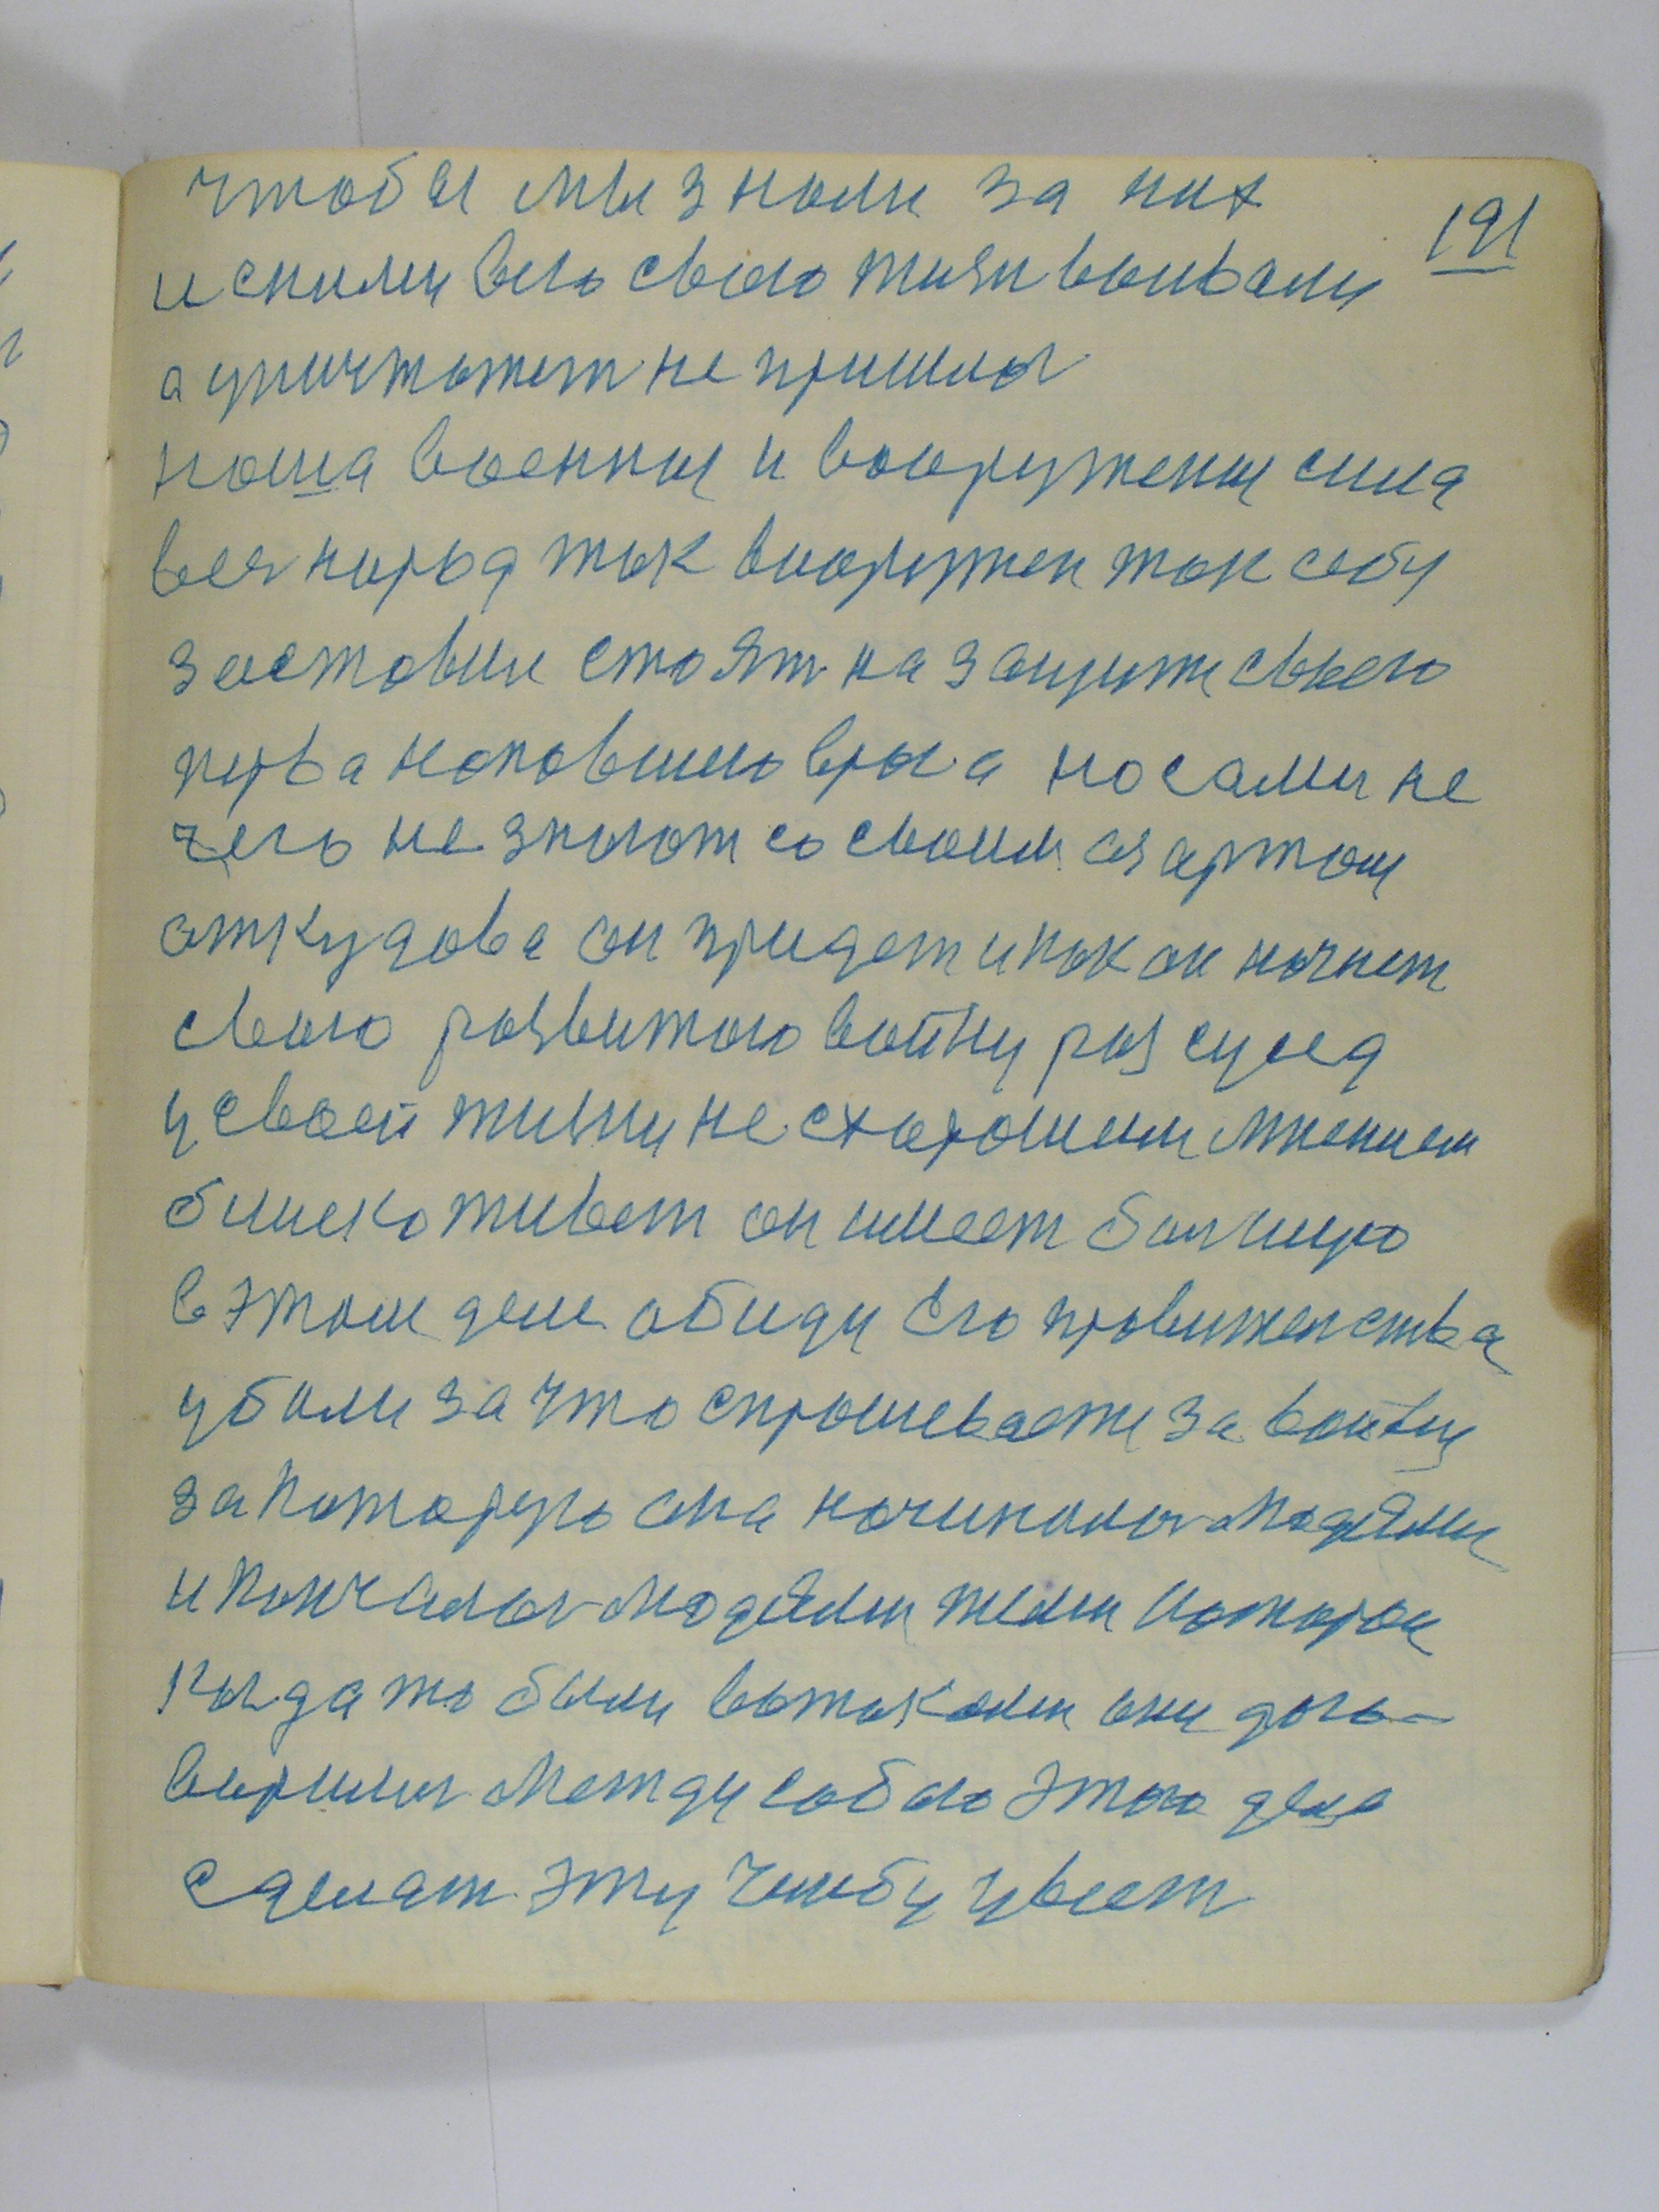 чтобы мы знали за них
191
и с ними всю свою жизн воивали
а уничтожет не пришлос
наша военны и вооружены сила
вся народ так вооружен так себу
заставил стоят на защите своего
перва напавшего врага но сами не
чего не знают со своим азартом
откудова он придет и как он начнет
свою развитою войну россуед
у своей жизни не схорошим мнением
близко живет он имеет болшую
в этом деле обиду его правиженства
убили за что спрашеваети за войну
за которую она начиналас людями
и кончалас людями теми которы
когда то были ваткоми они дого-
варилис между собою этого дела
сделат эту чюбу увсет